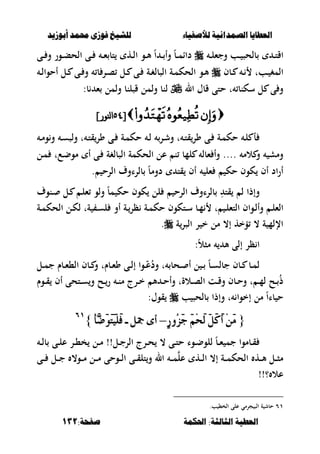 العطايا الصمدانية للأصفياء
للشيخ فوزى محمد أبوزيد
اقتدى بالحبيب وجعله ﷺ دائماً وأبداً هو الذى يتابعه فى الحضور وفى
المغيب، لأنه كان ﷺ هو الحكمة البالغة فى كل تصرفاته وفى كل أحواله
وفى كل سكناته، حتى قال الله ﷻ لنا ولمن قبلنا ولمن بعدنا:
﴿وَإِن تُطِيعُوهُ تَهْتَدُوا﴾ [٥٤النور]
فأكله حكمة فى طريقته، وشربه له حكمة فى طريقته، ولبسه ونومه
ومشيه وكلامه .... وأفعاله كلها تنم عن الحكمة البالغة فى أى موضع، فمن
أراد أن يكون حكيم فعليه أن يقتدى دوماً بالرءوف الرحيم.
وإذا لم يقتدِ بالرءوف الرحيم فلن يكون حكيماً ولو تعلم كل صنوف
العلم وألوان التعليم، لأنها ستكون حكمة نظرية أو فلسفية، لكن الحكمة
الإلهية لا تؤخذ إلا من خير البرية ﷺ.
انظر إلى هديه مثلاً:
لما كان جالساً بين أصحابه، ودُعُوا إلى طعام، وكان الطعام جمل
ذُبح لهم، وحان وقت الصلاة، وأحدهم خرج منه ريح ويستحى أن يقوم
حياءاً من إخوانه، وإذا بالحبيب ﷺ يقول:
{ مَنْ أَكَلَ لَحْمَ جَزُورٍ – أى جمل ـ فَلْيَتَوَضَّأْ } ٦١
فقاموا جميعاً للوضوء حتى لا يحرج الرجل!! من يخطر على باله
مثل هذه الحكمة إلا الذى علَّمه الله ويتلقى الوحى من مولاه جل فى
علاه؟!!
٦١ حاشية البجرمي على الخطيب.
العطية الثالثة: الحكمة
صفحة:١٣٢